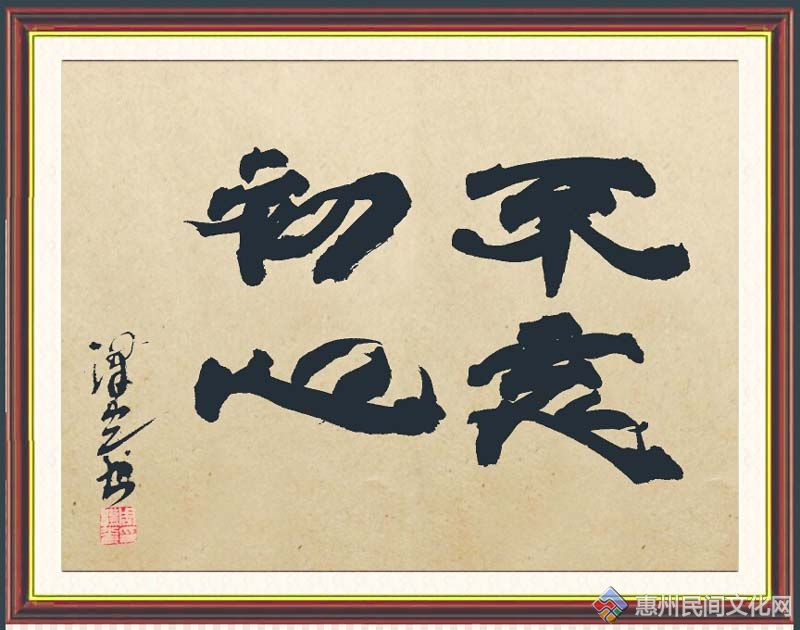 不忘
初心
惠州民间文化网